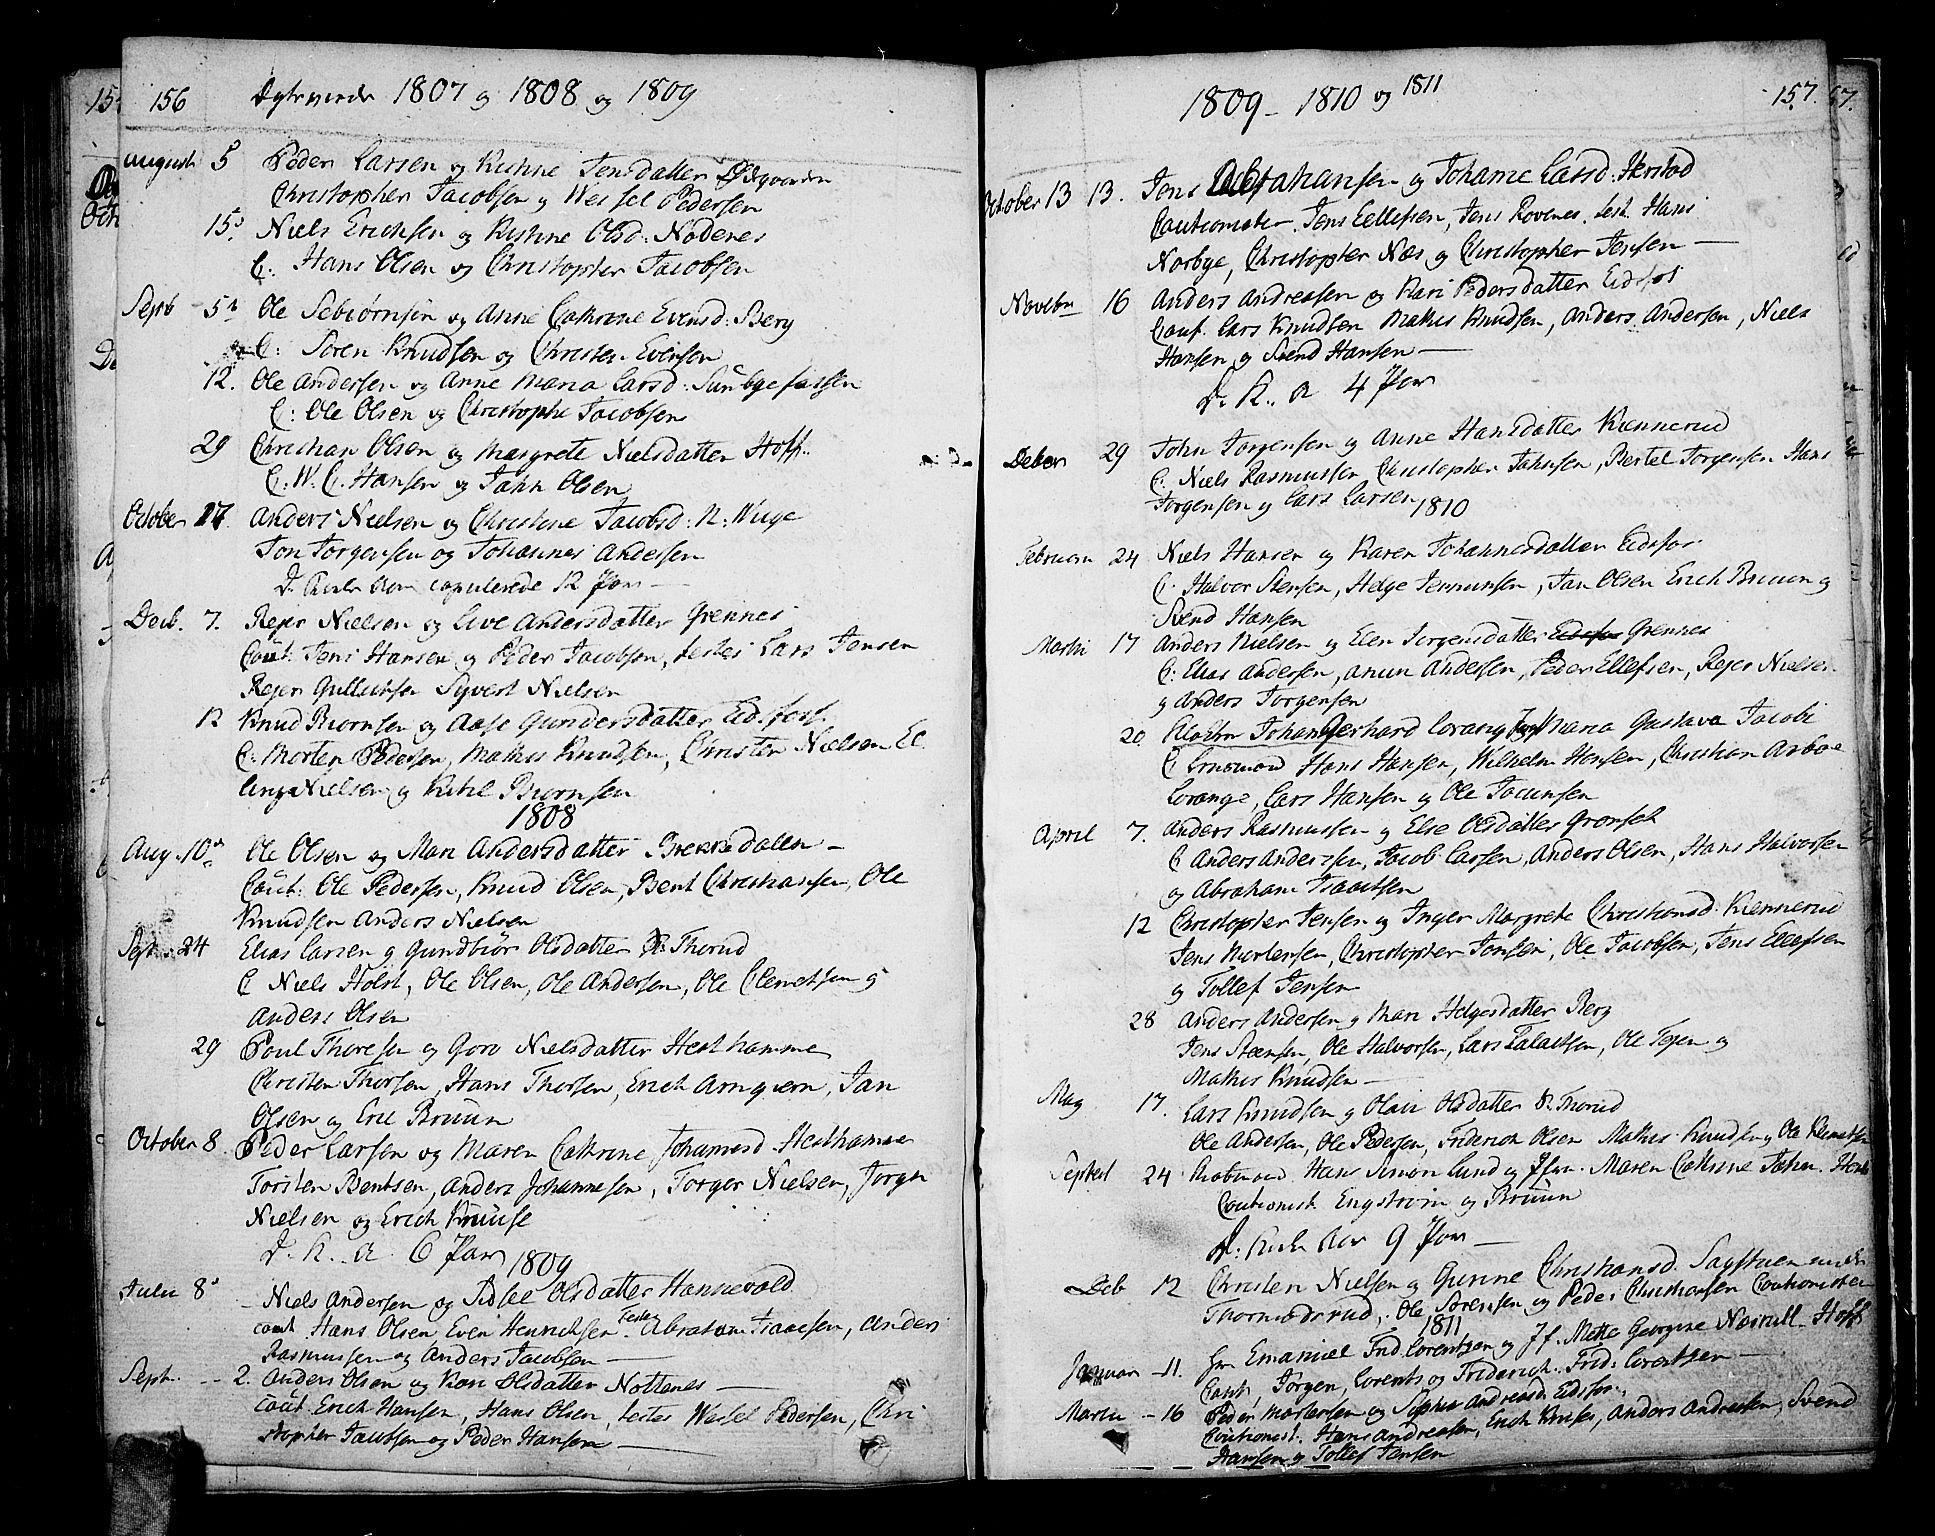 156 1807 og 1808 og 1809
August 5 Peder Larsen og Kistine Jensdatter
Christopher Jacobsen og Wessel Pedersen
15d Niels Erichsen og Kistine Olsd: Nodenes
C: Hans Olsen og Christopher Jacobsen
Septb 5t Ole Sebiørnsen og Anne Cathrine Evensd: Berg
C: Soren Knudsen og Christen Evensen
12. Ole Andersen og Anne Maria Larsd:
C: Ole Olsen og Christophe Jacobsen
29 Christian Olsen og Margrete Nielsdatter Hoff.
C: W. C. Hansen og Jahn Olsen
October 17. Anders Nielsen og Christine Jacobsd: N: Wuge
Jon Jorgensen og Johannes Andersen
copulerede 12 Par
Decb. 7. Rejer Nielsen og Live Andersdatter Grennes
Caut: Jens Hansen og Peder Jacobsen, testes Lars Jensen
Rejer Gulluchsen Syvert Nielsen
12 Knud Biornsen og Aase Gundersdatter Eidsfos
C: Morten Pedersen, Mathis Knudsen, Christen Nielsen El
ling Nielsen og Kitil Biornsen
1808
Aug. 10d Ole Olsen og Mari Andersdatter
Caut: Ole Pedersen, Knud Olsen, Bent Christiansen, Ole
Knudsen Anders Nielsen
Septr 24 Elias Larsen og Gundbiør Olsdatter Thorud
C Niels Holst, Ole Olsen, Ole Andersen, Ole Clemetsen og
Anders Olsen
29 Poul Thoresen og Goro Nielsdatter Hesthamme
Christen Thorsen, Hans Thorsen, Erich Arnqvern, Jan
Olsen og Eric Bruun
October 8. Peder Larsen og Maren Cathrine Johannesd. Hesthamme
Torsten Bentsen, Anders Johannesen, Torger Nielsen, Jorgn
Nielsen og Erich Kruuse
D. K. A. 6 Par
1809
Julii 8d Niels Andersen og Sidsel Olsdatter Hannevold
caut. Hans Olsen Even Henrichsen Testes Abraham Isaacsen, Anders
Rasmussen og Anders Jacobsen
Sept. 2. Anders Olsen og Kari Olsdatter Nottenes
caut. Erich Hansen, Hans Olsen, testes Wessel Pedersen, Chri
stopher Jacobsen og Peder Hansen
1809 - 1810 og 1811 157.
October 13 13. Jens Abrahansen og Johanne Larsd:
Cautionister Jens Eellefsen, Jens Rovenes. test. Hans
Norbye, Christopher Næs og Christopher Jensen
Novebr 16 Anders Andreasen og Kari Pedersdatter Eidsfos
Caut. Lars Knudsen Mathis Knudsen, Anders Andersen, Niels
Hansen og Svend Hansen
D. K. A 4 Par
Deber 29 John Jorgensen og Anne Hansdatter Kiennerud
C. Niels Rasmussen Christopher Johnsen, Bertel Jorgensen Hans
Jorgensen og Lars Larsen
1810
Februari 24 Niels Hansen og Karen Johannesdatter Eidsfos
C: Halvor Stensen, Helge Jermunsen, Jan Olsen Erich Bruun og
Svend Hansen
Martii 17 Anders Nielsen og Elen Jorgensdatter Eidsfos Grennes
C: Elias Andersen, Anun Andersen, Peder Ellefsen, Rejer Nielsen
og Anders Jorgensen
20 Johan Gerhard Lorang Maria Gustava Jacobi
C Hans Hansen, Wilhelm Hansen, Christian Arboe
Lorange, Lars Hansen og Ole Jocumsen
April 7. Anders Rasmussen og Else Olsdatter Gronset
C Anders Andersen, Jacob Larsen, Anders Olsen, Hans Halvorsen
og Abraham Isaacsen
12 Christopher Jensen og Inger Margrete Christiansd. Kiennerud
Jens Mortensen, Christopher Jonsen, Ole Jacobsen, Jens Ellefsen
og Tollef Jensen
28 Anders Andersen og Mari Helgesdatter Berg
Jens Steensen, Ole Halvorsen, Lars Talactsen, Ole Tejen og
Mathis Knudsen
Maj 17. Lars Knudsen og Olau Olsdatter Thorud
Ole Andersen, Ole Pedersen, Friderich Olsen Mathis Knudsen og Ole Klemetsen
Septed 24 Hans Simon Lund og Maren Cathrine
Cautionist. Engstrøm og Bruun
9 Par
Deb 12 Christen Nielsen og Gunne Christiansd. Sagstuen under
Thornædsrud, Ole Sorensen og Peder Christiansen Cautionister
1811
Januari 11. Hr. Emaniel Frid. Lorentsen og Jf. Mette Georgine Neirull Hoff
Caut, Jorgen, Lorents og Friderich Frid: Lorentsen
Martii 16 Peder Mortensen og Sophie Andreasd. Eidsfos
Cautionist: Hans Andreasen, Erich Kruse, Anders Andreasen, Svend
Hansen og Tollef Jensen